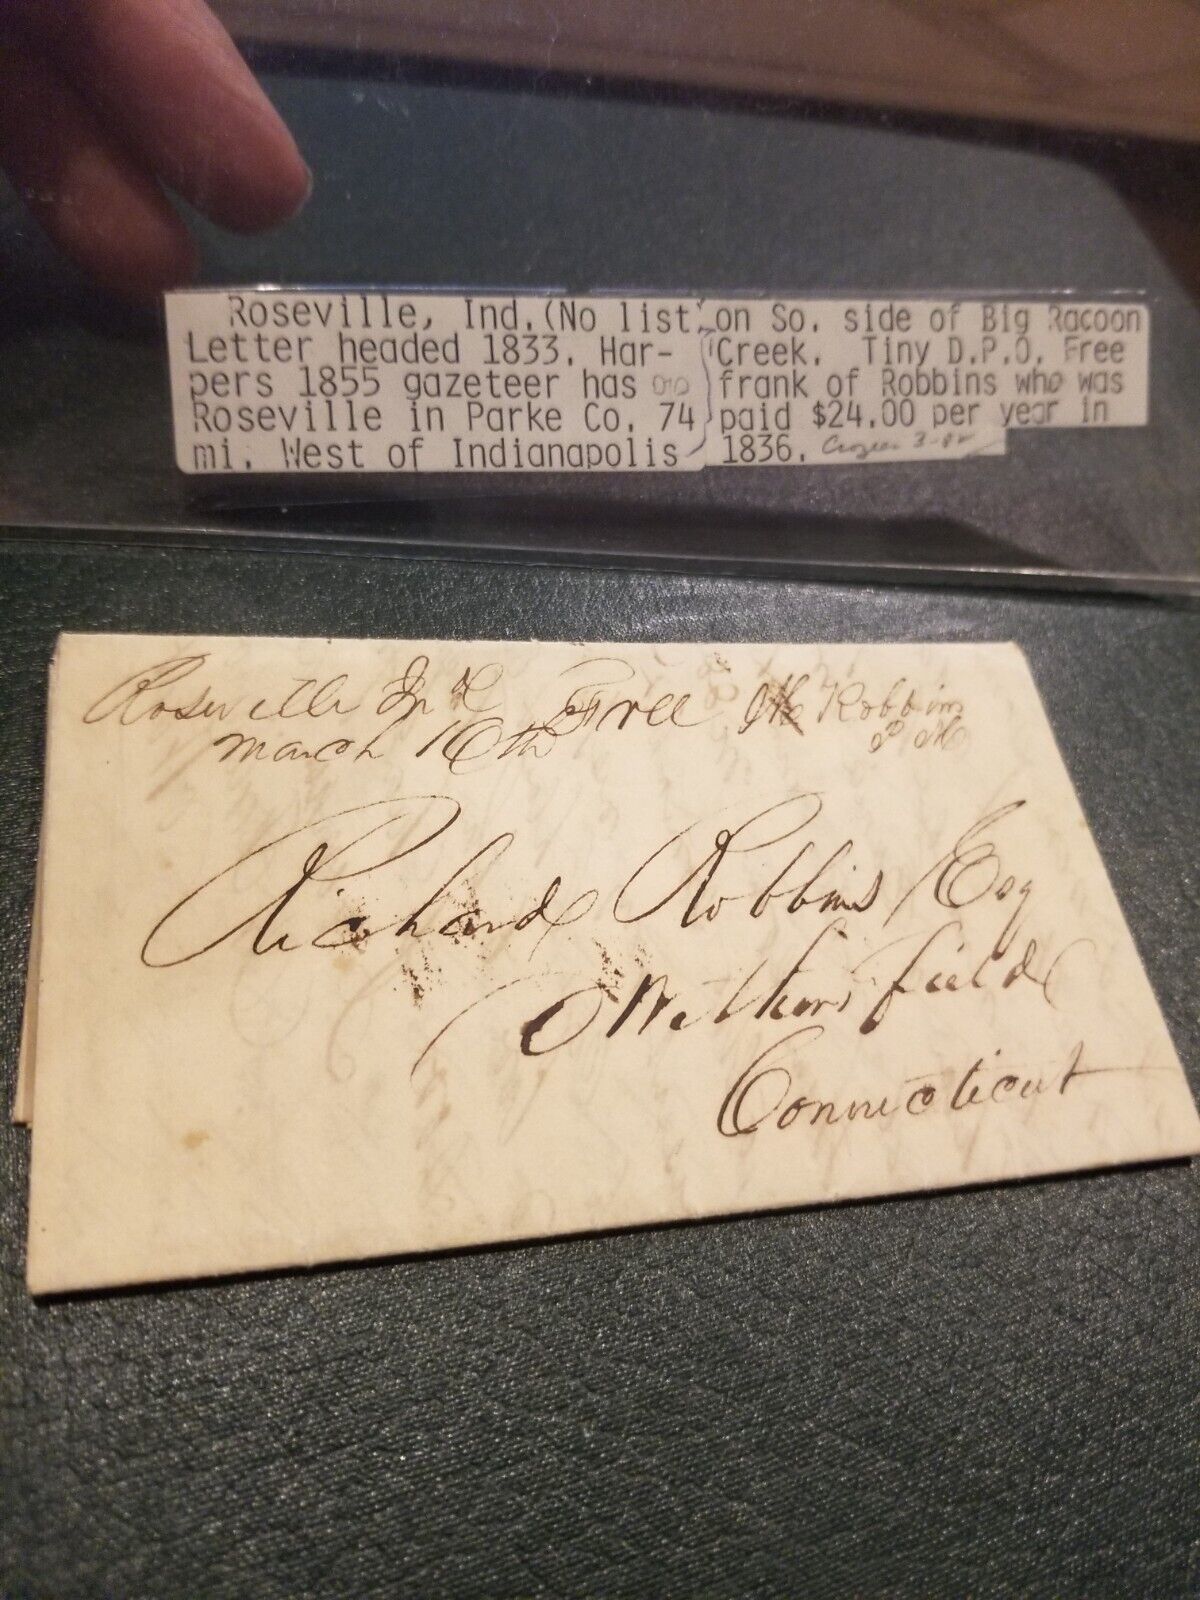 Roseville, Ind. (No list
Letter headed 1833. Har-
pers 1855 gazeteer has
Roseville in Parke Co. 74
mi. West of Indianapolis
on So. side of Big Racoon
Creek. Tiny D.P.O. Free
frank of Robbins who was
paid $24.00 per year in
1836. 3-82
Roseville Ind Free Robbins
March 16th P M
Richard Robbins Esq
Connecticut